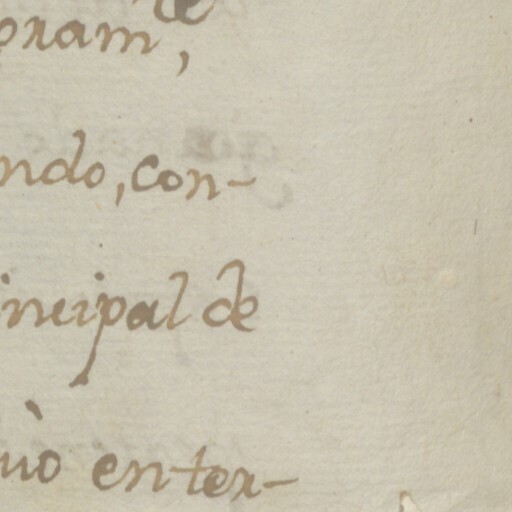 oram.te,
ndo, con-
incipal de
uò enter-